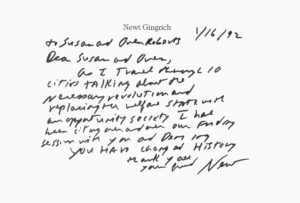 Newt Gingrich
1/16/92
To Susan and Owen Roberts
Dear Susan and Owen,
As I Travel through 10
cities TALKING about the
Necessary revolution and
replacing the welfare state with
an opportunity society I have
been citing over and over our Friday
session with you and
YOU HAVE changed History
Thank you
your friend Newt